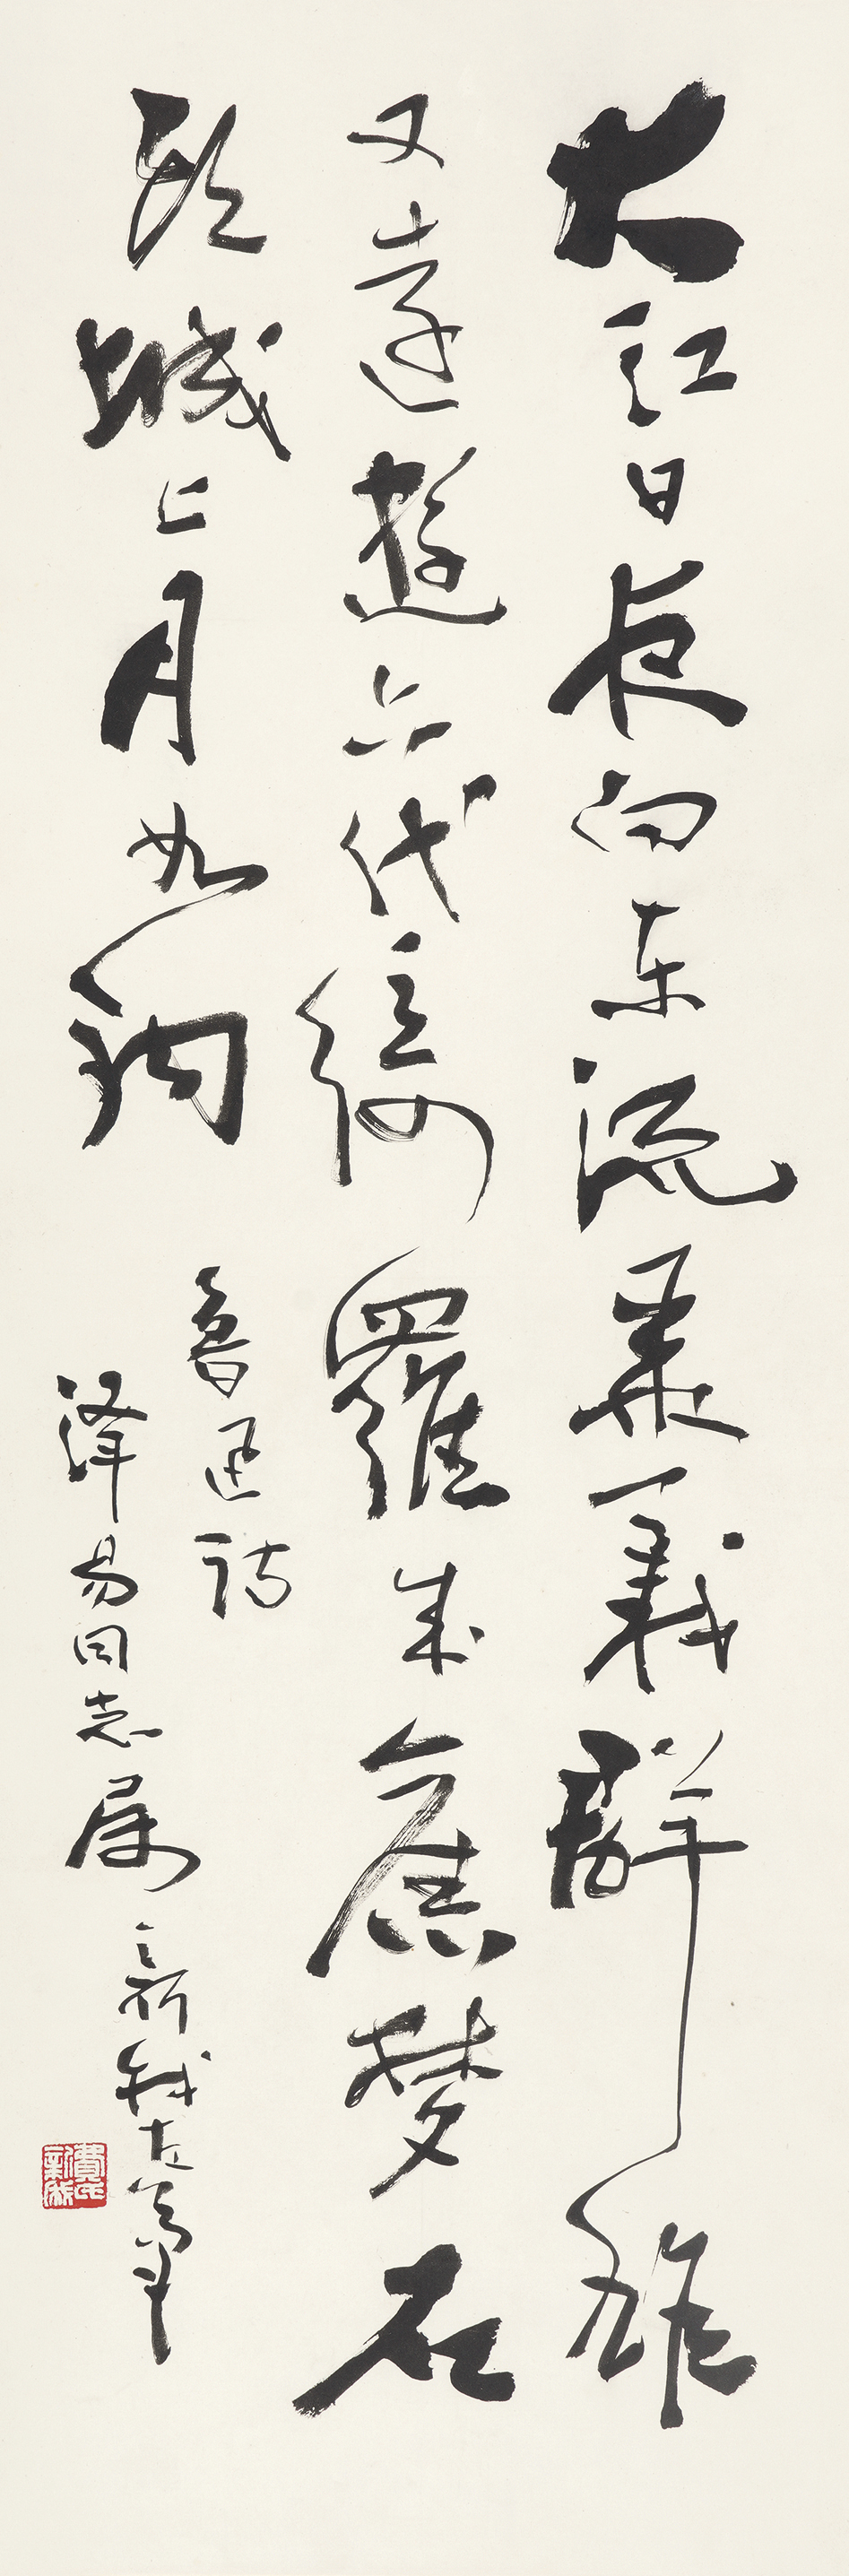 大江日夜向东流聚义群雄
又远游六代绮罗成旧梦石
头城上月如钩
鲁迅诗
泽易同志属
新我左笔
费氏新我